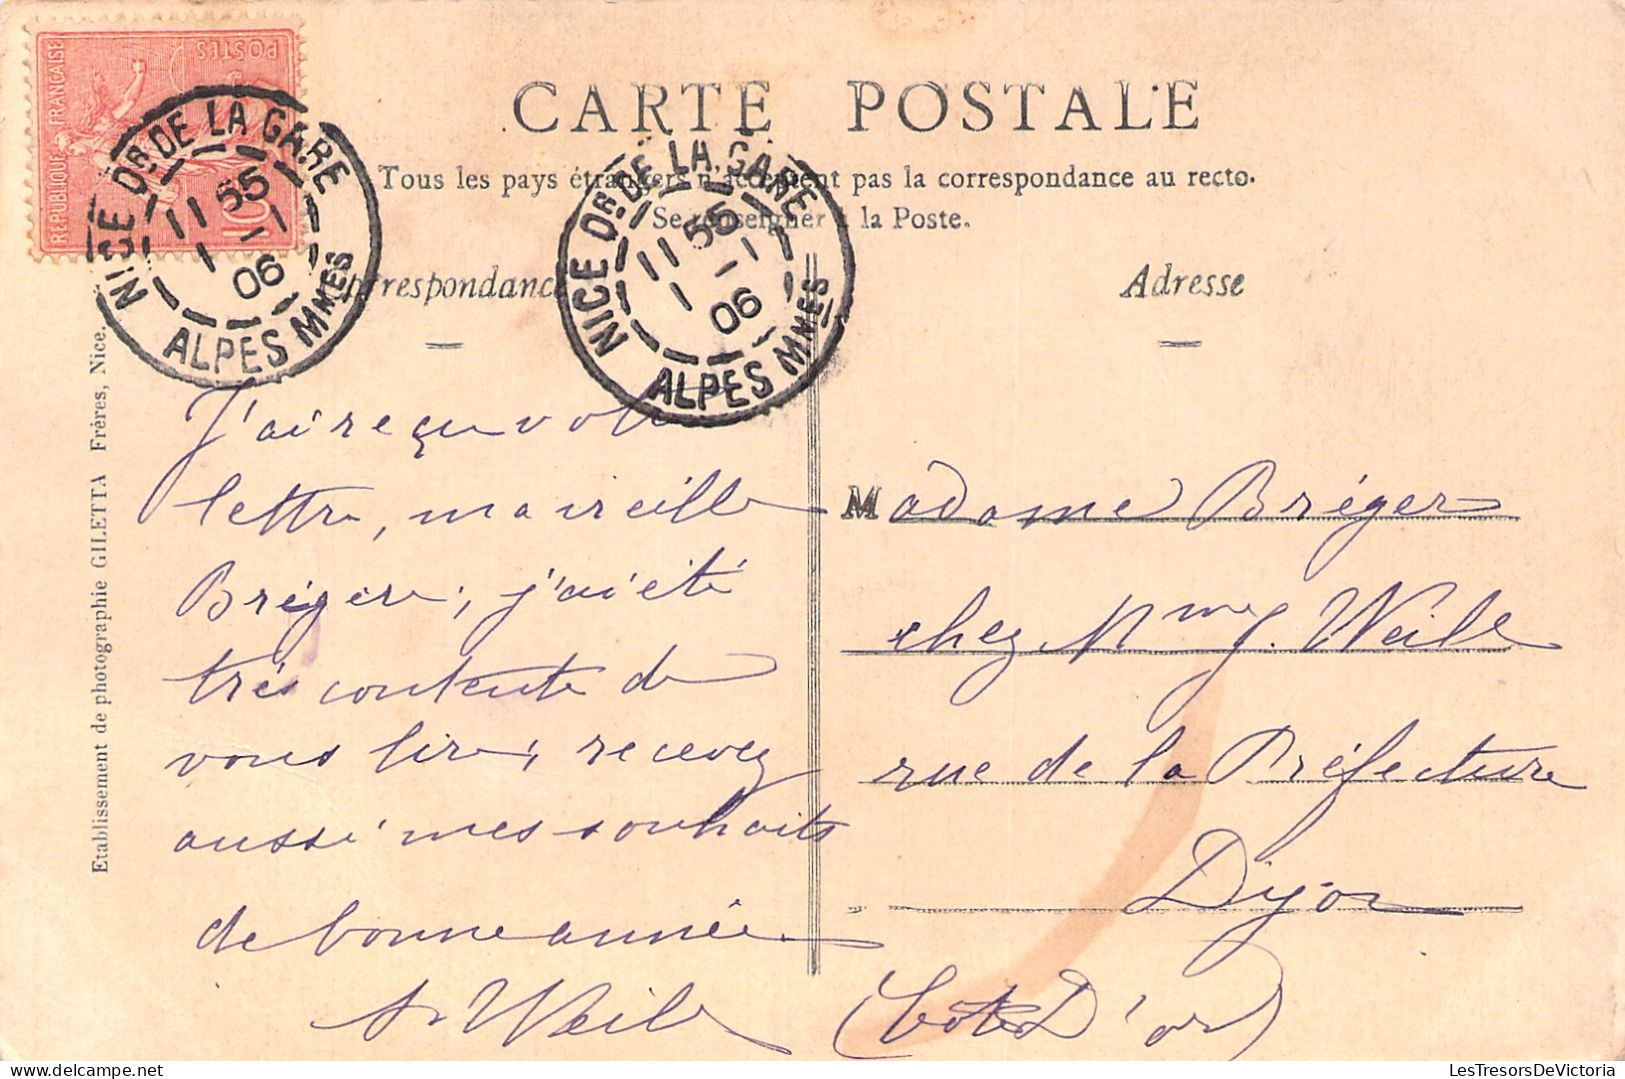 REPUBLIQUE FRANÇAISE
POSTES
10
NICE Dr. DE LA GARE
11 55
1 - 1
06
ALPES MMES
NICE Dr. DE LA GARE
11 55
1 - 1
06
ALPES MMES
CARTE POSTALE
Tous les pays étrangers n'acceptent pas la correspondance au recto.
Se renseigner à la Poste.
Correspondance
Adresse
Etablissement de photographie GILETTA Frères, Nice.
J'ai reçu votre
lettre, ma vieille
Brégère, j'ai été
très contente de
vous lire, recevez
aussi mes souhaits
de bonne année
Weill
Madame Bréger
chez Mme J. Weill
rue de la Préfecture
Dijon
(Côte D'or)
LesTresorsDeVictoria